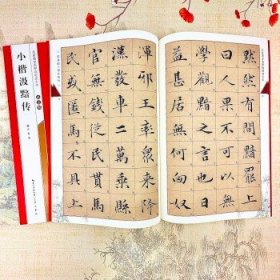 小楷汲黯传
默然有間黯罷上
曰人果不可以無
學觀黯之言也日
益甚居無何匈奴
渾邪王率衆來降
漢發車二萬乘縣
官無錢從民貰馬
民或匿馬